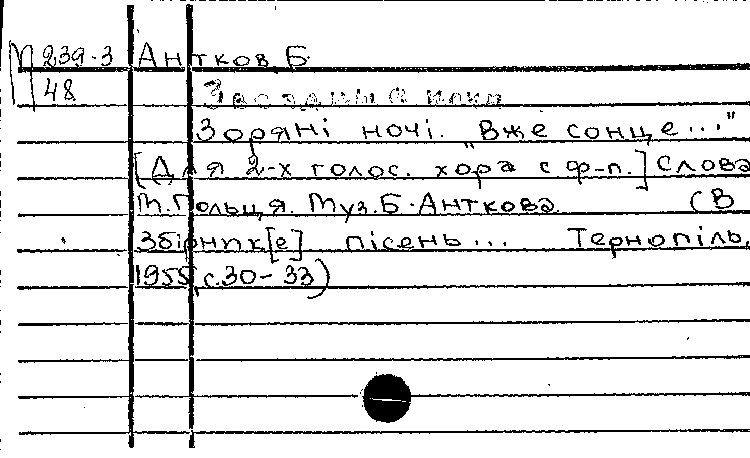 М 239-3 Антков Б.
48 Звездные ночи
Зоряні ночі. "Вже сонце..."
[Для 2-х голос. хора с ф-п.] Слова
М. Гольця. Муз. Б. Анткова. (В
Збірник[е] пісень... Тернопіль,
1955, с. 30-33)